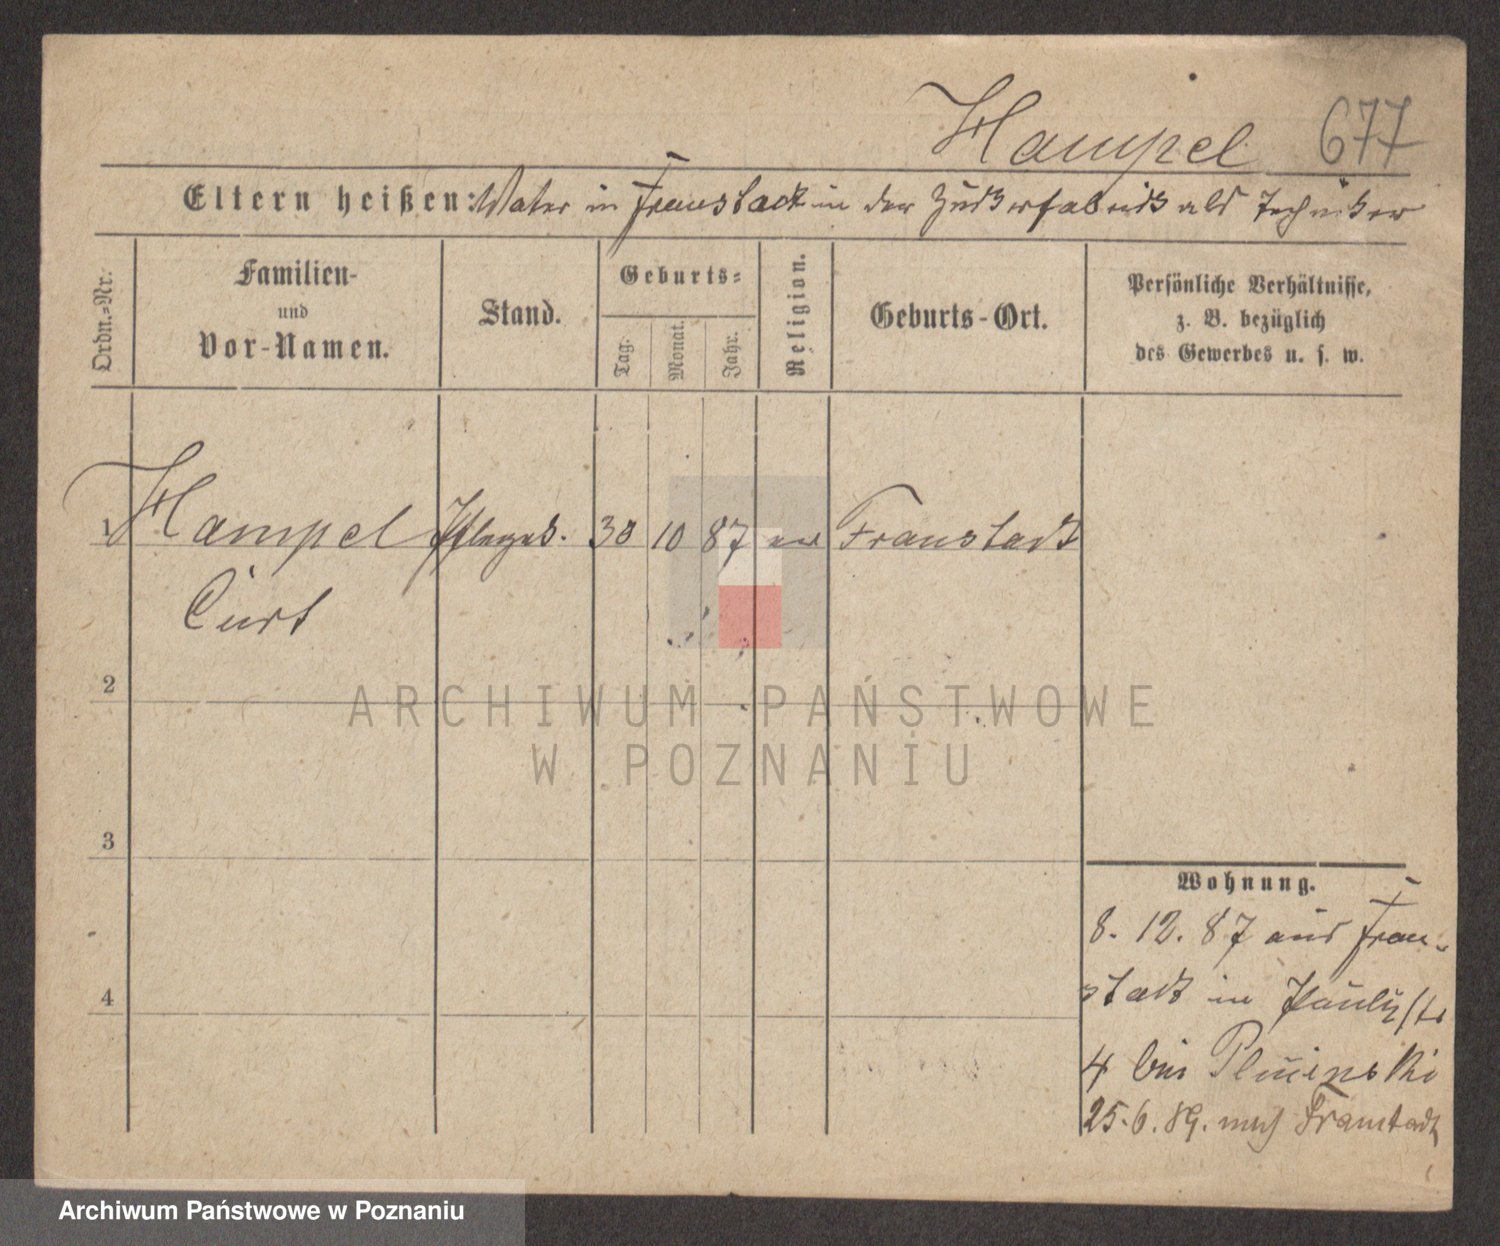 Hampel 677
Eltern heißen: Vater in Fraustadt in der Zuckerfabrik als Techniker
Ordn.-Nr.
Familien-
und
Vor-Namen.
Stand.
Geburts-
Tag.
Monat.
Jahr.
Religion.
Geburts-Ort.
Persönliche Verhältnisse,
z. B. bezüglich
des Gewerbes u. s. w.
1 Hampel Pflegek. 30 10 87 ev Fraustadt
Curt
2
3
4
Wohnung.
8. 12. 87 aus Frau-
stadt in Paulistr
4 bei
25. 6. 89. nach Fraustadt
ARCHIWUM PAŃSTWOWE
W POZNANIU
Archiwum Państwowe w Poznaniu